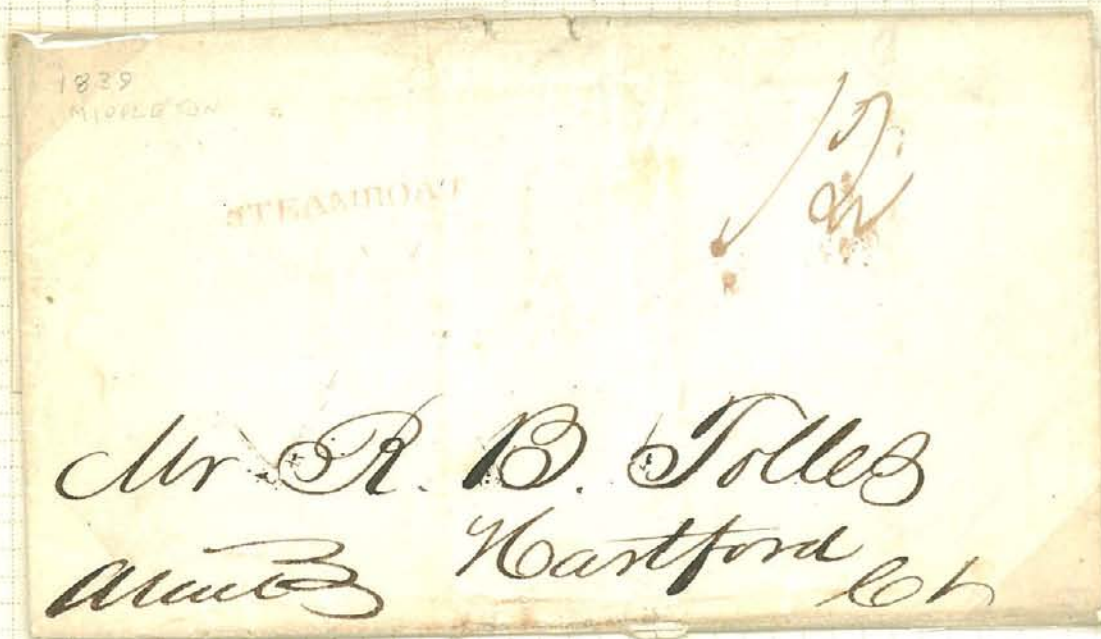 1839
MIDDLETON
STEAMBOAT
Mr R. B. Tolles
Hartford
Ct